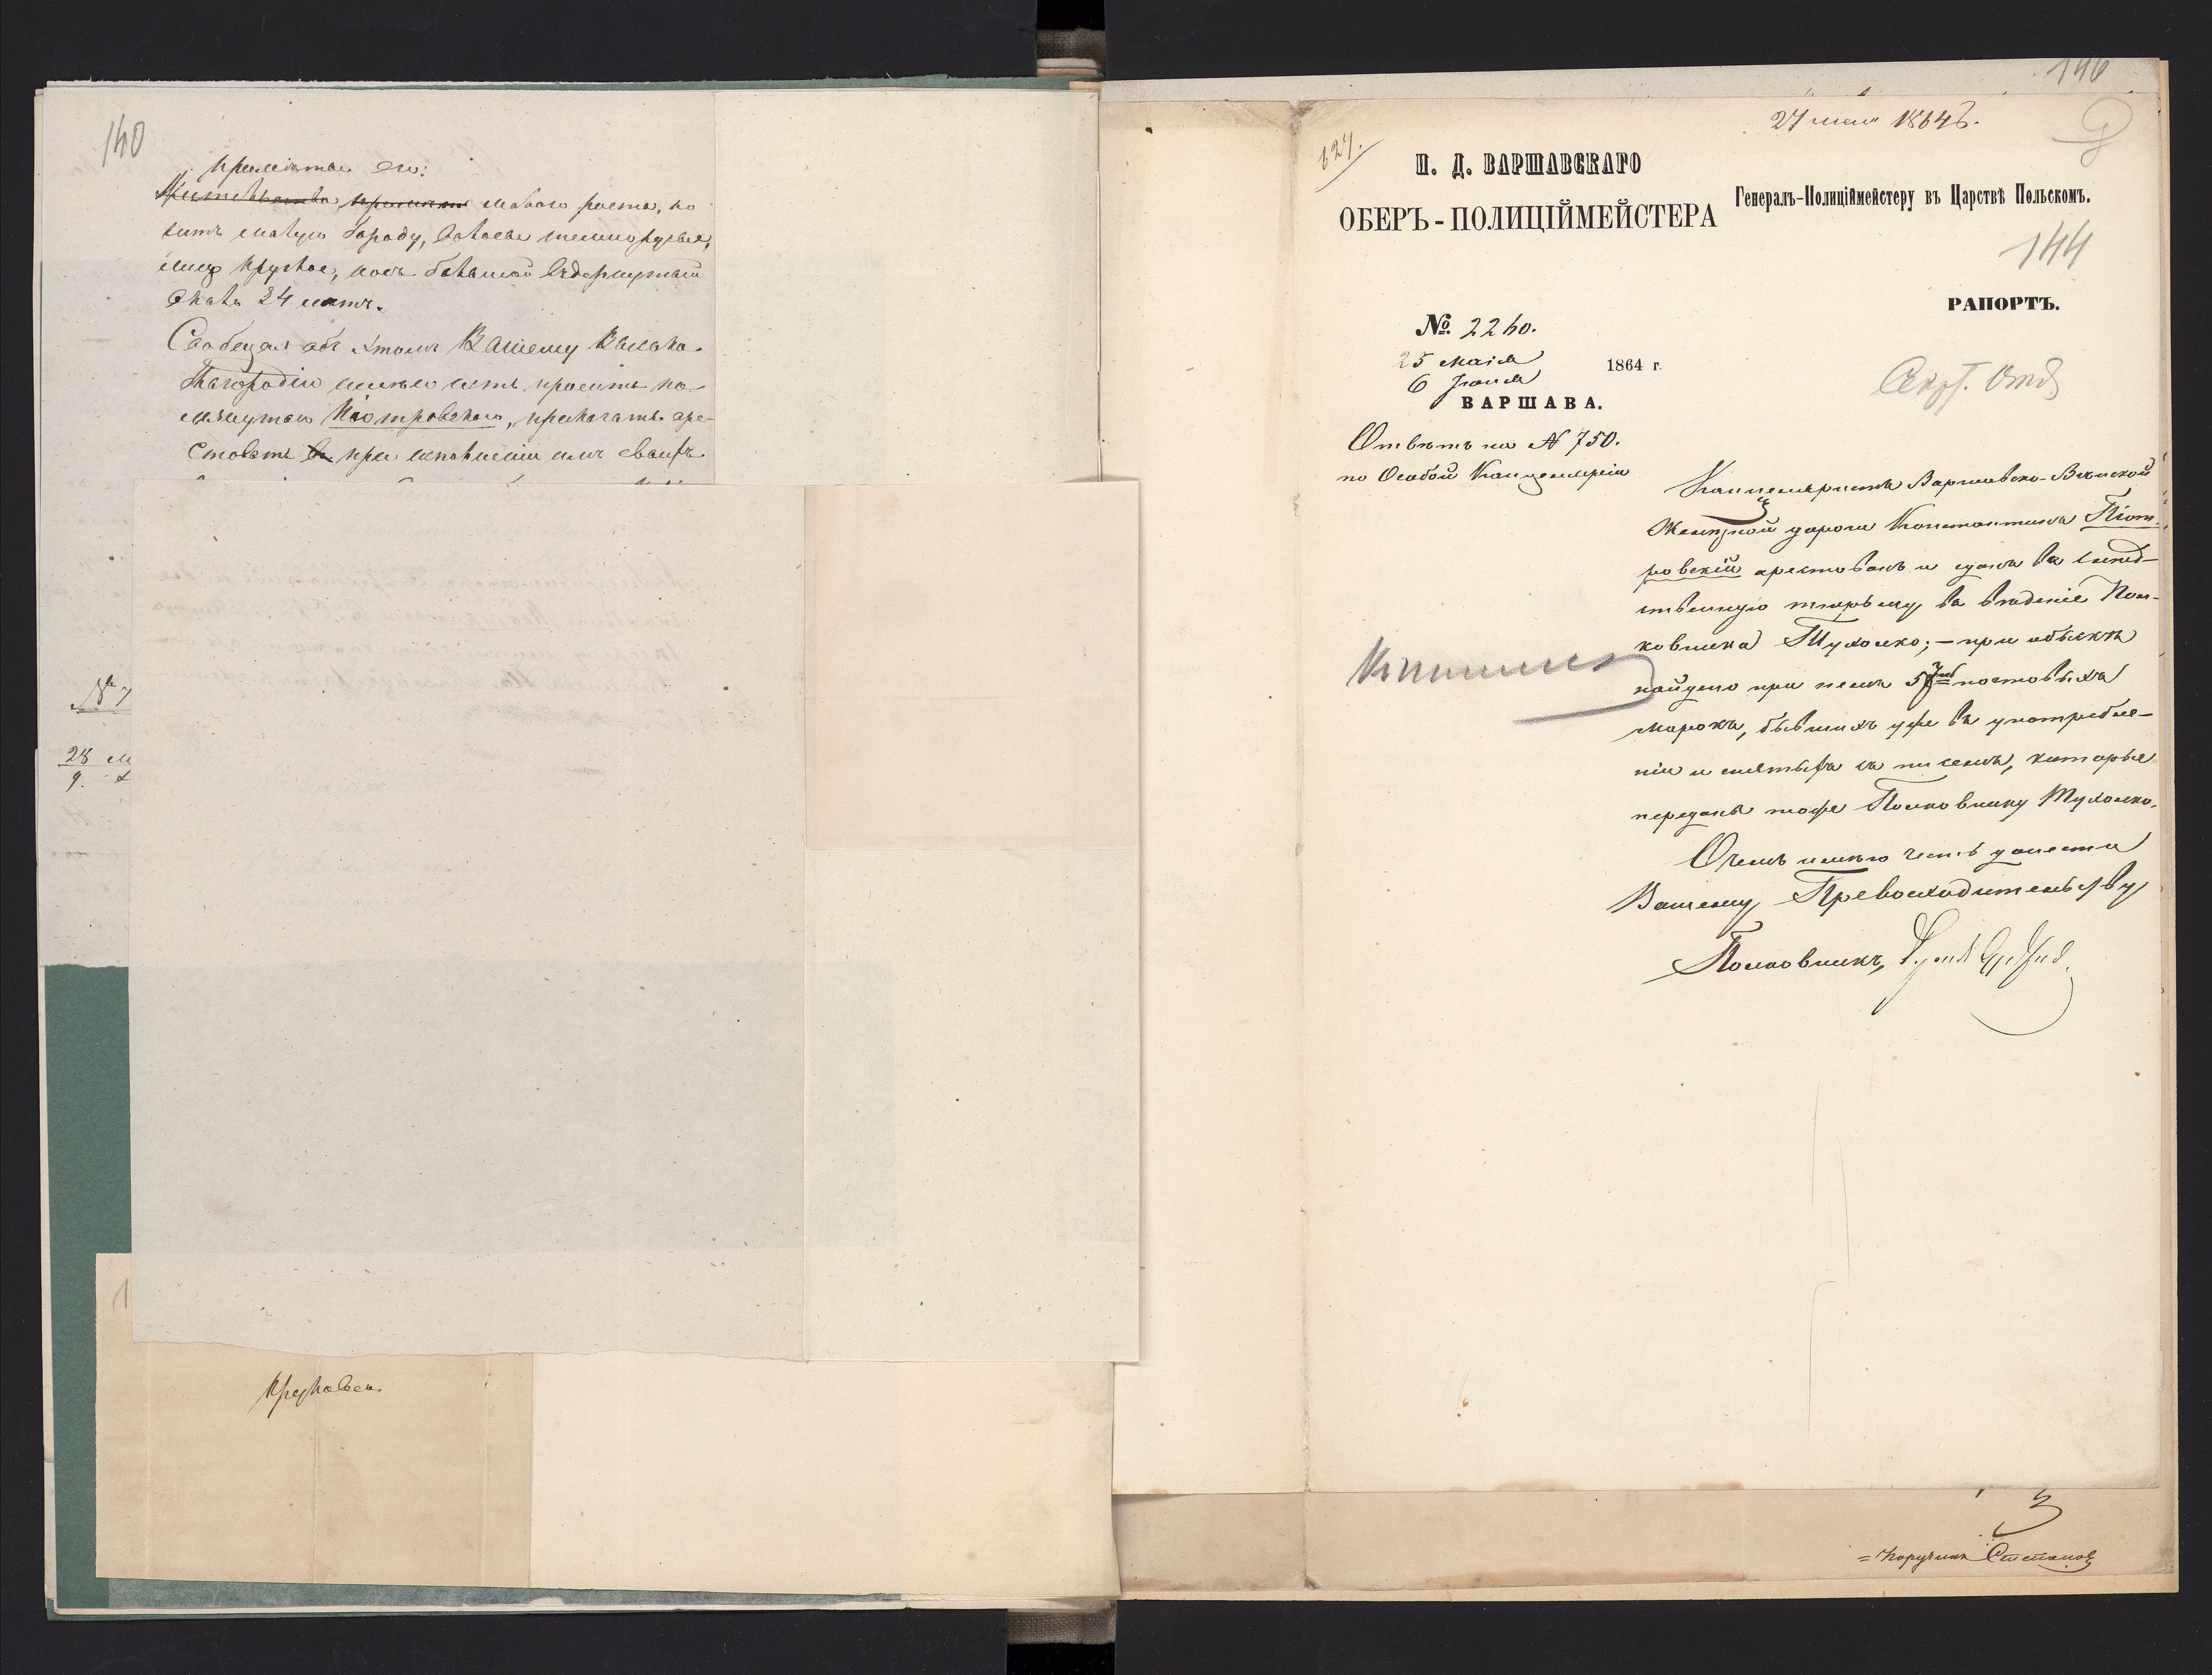 140
приметы его:
малаго роста, но
ситъ малую бороду, волосы темнорусые,
лицо круглое, носъ большой вздернутый
около 24 летъ.
Сообщая объ этомъ Вашему Высоко-
благородію имею честь просить по-
мянутаго Піотровскаго, приказать аре-
стовать при исполненіи имъ своихъ
№ 7
28 м
9.
1
146
27 мая 1864 г.
624.
И. Д. ВАРШАВСКАГО
ОБЕРЪ-ПОЛИЦІЙМЕЙСТЕРА
Генералъ-Полиціймейстеру въ Царствѣ Польскомъ.
144
РАПОРТЪ.
№ 2260.
25 мая
6 Іюня
1864 г.
ВАРШАВА.
Секр. Отд.
Ответъ на № 750.
по Особой Канцеляріи
Канцеляристъ Варшавско-Венской
Железной дороги Константинъ Піот-
ровскій арестованъ и сданъ въ след-
ственную тюрьму въ веденіе Пол-
ковника Тухолко; – при обыске
найдено при немъ 57 почтовыхъ
марокъ, бывшихъ уже въ употребле-
ніи и снятыхъ съ писемъ, которые
переданы тоже Полковнику Тухолко.
О чемъ имею честь донести
Вашему Превосходительству
Полковникъ,
= Поручикъ Степанов